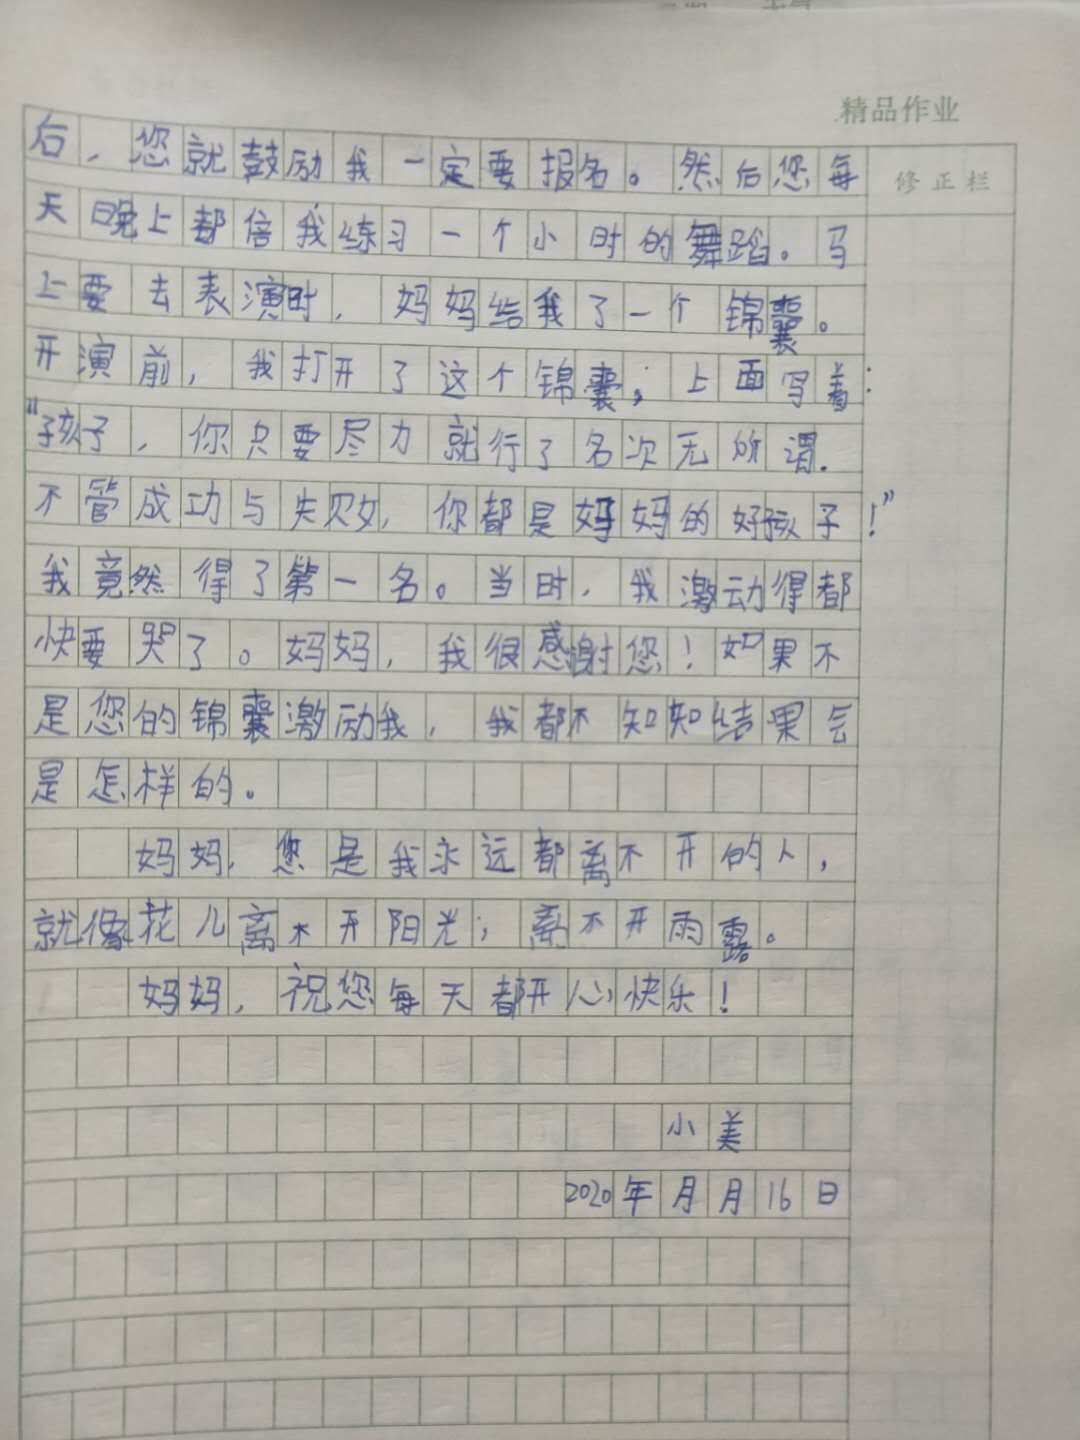 精品作业
修正栏
后,您就鼓励我一定要报名。然后您每
天晚上都倍我练习一个小时的舞蹈。马
上要去表演时,妈妈给我了一个锦囊。
开演前,我打开了这个锦囊,上面写着:
“孩子,你只要尽力就行了名次无所谓.
不管成功与失败,你都是妈妈的好孩子!”
我竟然得了第一名。当时,我激动得都
快要哭了。妈妈,我很感谢您!如果不
是您的锦囊激励我,我都不知知结果会
是怎样的。
妈妈,您是我永远都离不开的人,
就像花儿离不开阳光;离不开雨露。
妈妈,祝您每天都开心快乐!
小美
2020年月月16日